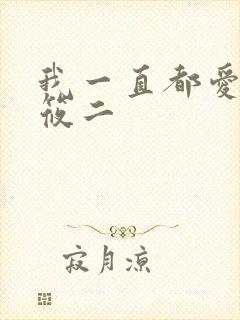 我一直都愛
筱二
寂月涼